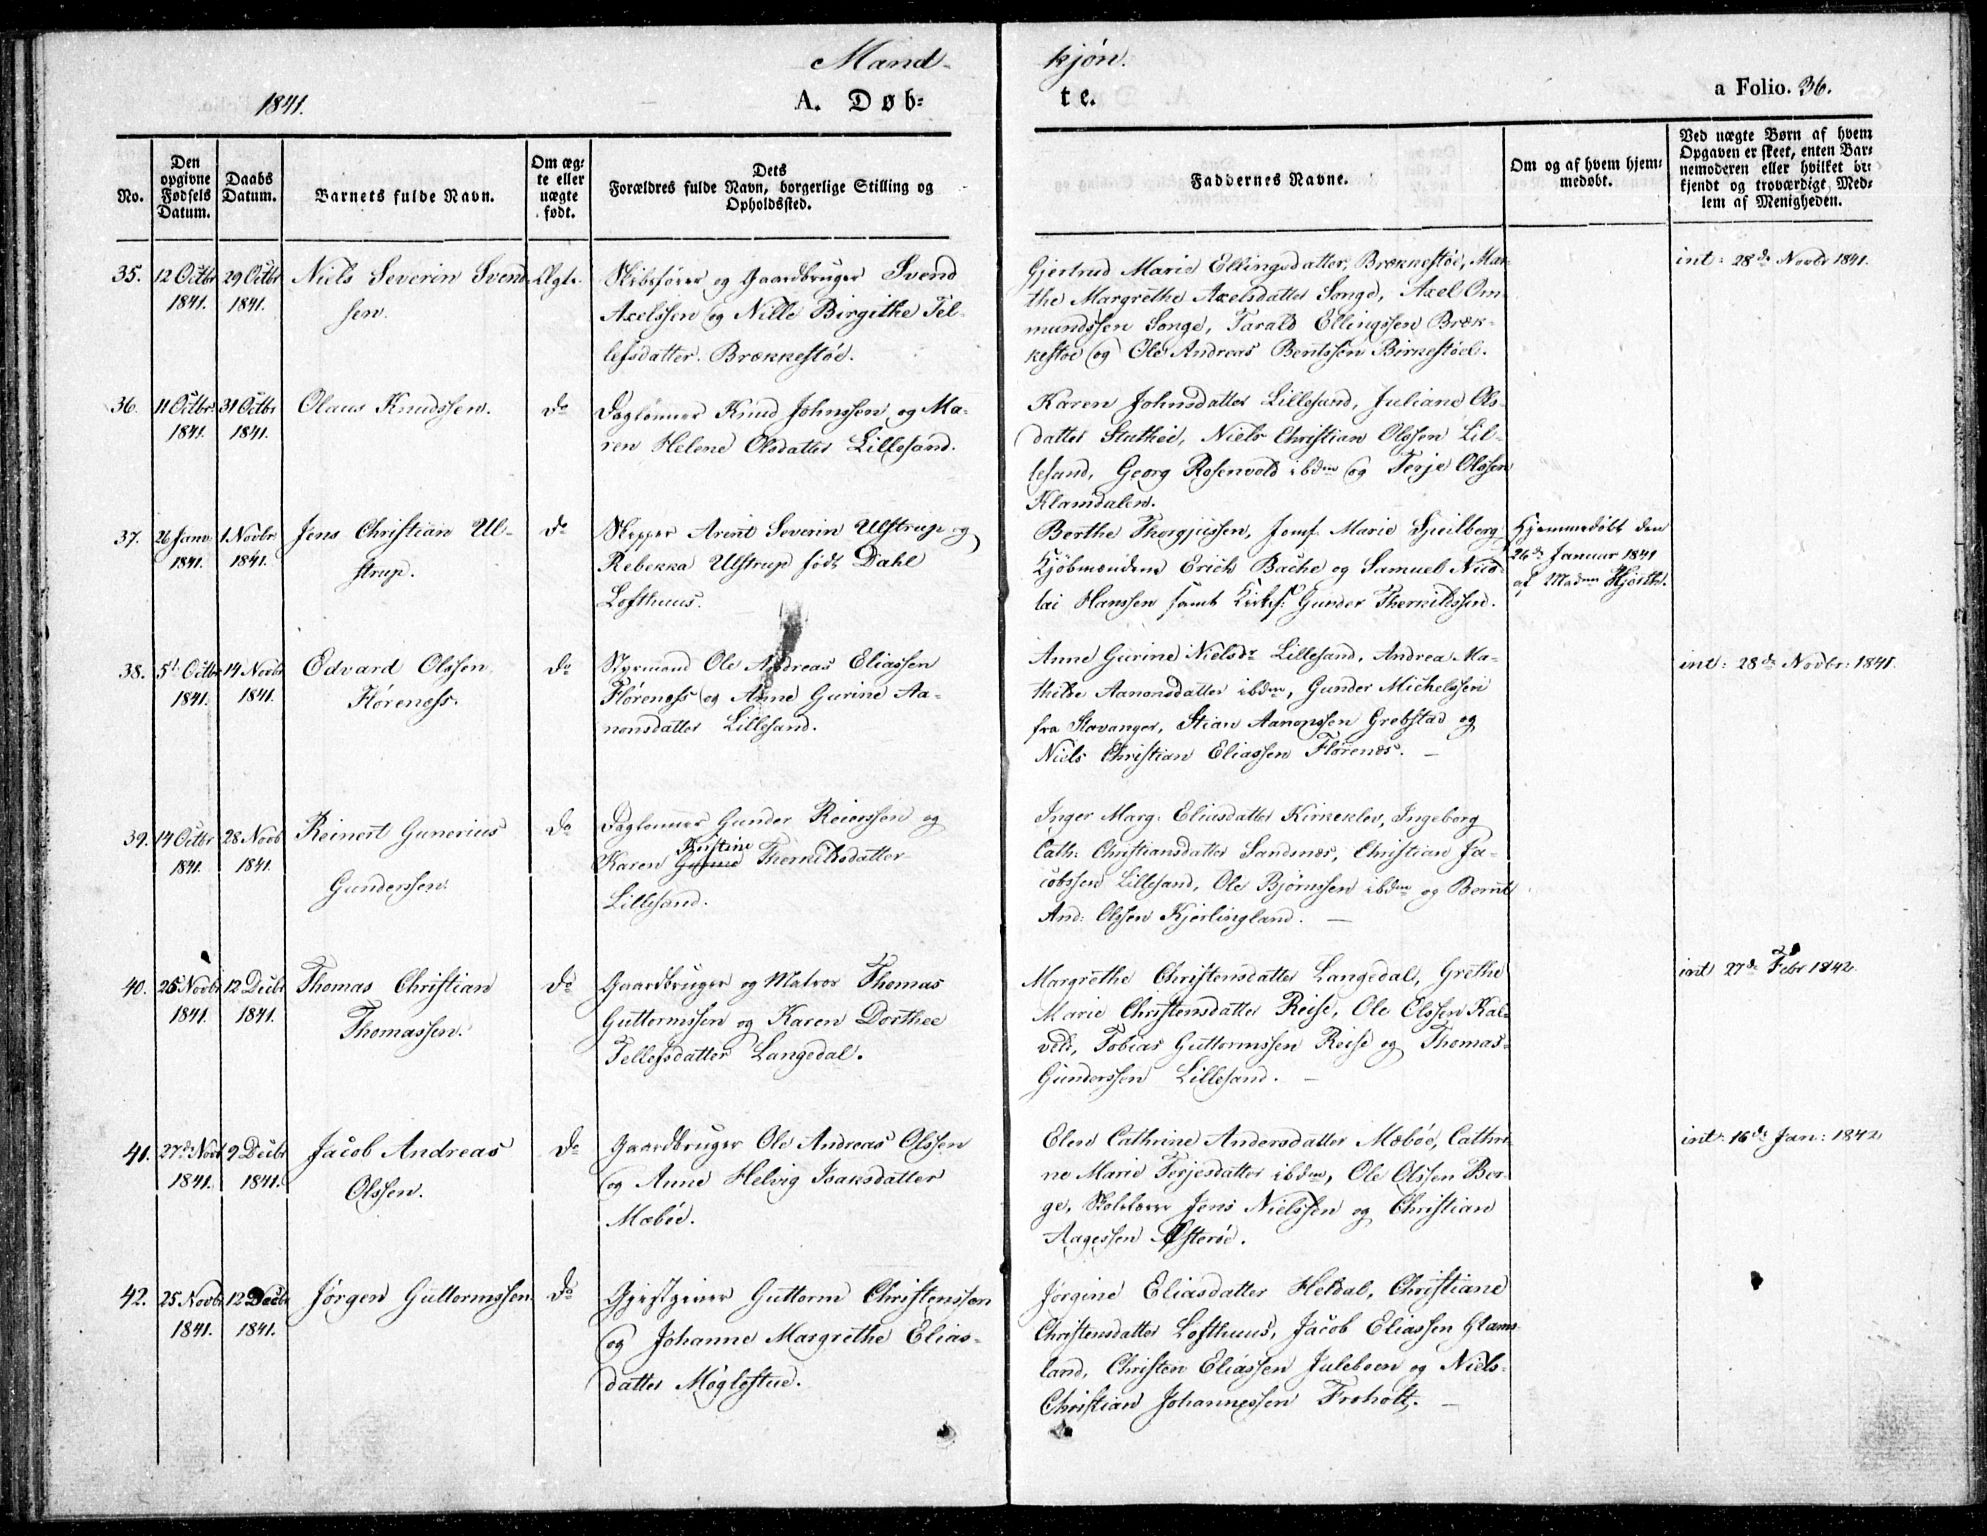 Mand-
kjøn.
1841.
A. Døb-
te.
a Folio. 36.
No.
Den opgivne Fødsels Datum.
Daabs Datum.
Barnets fulde Navn.
Om ægte eller nægte født.
Dets
Forældres fulde Navn, borgerlige Stilling og
Opholdssted.
Faddernes Navne.
Om og af hvem hjem-
medøbt.
Ved nægte Børn af hvem
Opgaven er skeet, enten Bar-
nemoderen eller hvilket be-
kjendt og troværdigt Med-
lem af Menigheden.
35. 12 Octbr 1841. 29 Octbr 1841.
Niels Severin Svend-
sen.
Ægte.
Skibsfører og Gaardbruger Svend
Axelssen og Nille Birgithe Tel-
lefsdatter. Brækkestøe.
Gjertrud Marie Ellingsdatter, Brækkestøe, Mar-
the Margrethe Axelsdatter Songe, Axel Om-
mundssen Songe, Tarald Ellingssen Bræk-
kestøe og Ole Andreas Bentssen Birkestøel.
int: 28de Novbr 1841.
36. 11 Octbr. 1841. 31 Octbr 1841.
Olaus Knudssen.
Do
Daglønner Knud Johnssen og Ma-
ren Helene Olsdatter Lillesand.
Karen Johnsdatter Lillesand, Juliane Ols-
datter Statheie, Niels Christian Olssen Lil-
lesand, Georg Rosenvold ibdm og Terje Olssen
Klamdalen.
37. 26 Janv 1841. 1 Novbr 1841.
Jens Christian Ul-
strup.
Do
Skipper Arent Severin Ulstrup og
Rebekka Ulstrup født Dahl
Lofthuus.
Berthe Thorgjussen, Jomf. Marie Speilberg,
Kjøbmændene Erich Bache og Samuel Nico-
lai Hanssen samt Kirkes: Gunder Therkildssen.
Hjemmedøbt den
26de Januar 1841
af Madm Hjorth.
38. 5t Octbr 1841. 14 Novbr 1841.
Edvard Olssen
Flørenæss.
Do
Styrmand Ole Andreas Eliassen
Flørenæss og Anne Gurine Aa-
nonsdatter Lillesand.
Anne Gurine Nielsdr Lillesand, Andrea Ma-
thilde Aanonsdatter ibdm, Gunder Michelssen
fra Stavanger, Stian Aanonssen Grebstad og
Niels Christian Eliassen Flørenæs.
int: 28de Novbr: 1841.
39. 14 Octbr 1841. 28 Novb 1841.
Reinert Gunerius
Gunderssen.
Do
Daglønner Gunder Reierssen og
Kirstine
Karen Gurine Therkildsdatter
Lillesand.
Inger Marg: Eliasdatter Kirkeklev, Ingeborg
Cath: Christiansdatter Sandsnæs, Christian Ja-
cobssen Lillesand, Ole Bjørnssen ibdm og Bernt
And: Olssen Kjerlingland.
40. 25 Novbr 1841. 12 Decbr 1841.
Thomas Christian
Thomassen.
Do
Gaardbruger og Matros Thomas
Guttormssen og Karen Dorthee
Tellefsdatter Langedal.
Margrethe Christensdatter Langedal, Grethe
Marie Christensdatter Reise, Ole Olssen Kal-
vild, Tobias Guttormssen Reise og Thomas
Gunderssen Lillesand.
int 27de Febr 1842.
41. 27de Novb 1841. 9 Decbr 1841.
Jacob Andreas
Olssen.
Do
Gaardbruger Ole Andreas Olssen
og Anne Helvig Isaksdatter
Mæbøe.
Elen Cathrine Andersdatter Mæbøe, Cathri-
ne Marie Terjesdatter ibdm, Ole Olssen Ber-
ge, Skolelærer Jens Nielssen og Christian
Aagessen Østerøe.
int: 16de Jan: 1842.
42. 25 Novbr 1841. 12 Decbr 1841.
Jørgen Guttormssen.
Do
Gjestgiver Guttorm Christenssen
og Johanne Margrethe Elias-
datter Møglestue.
Jørgine Eliasdatter Heldal, Christiane
Christensdatter Lofthuus, Jacob Eliassen Glams-
land, Christen Eliassen Juleboen og Niels
Christian Johannessen Froholt.